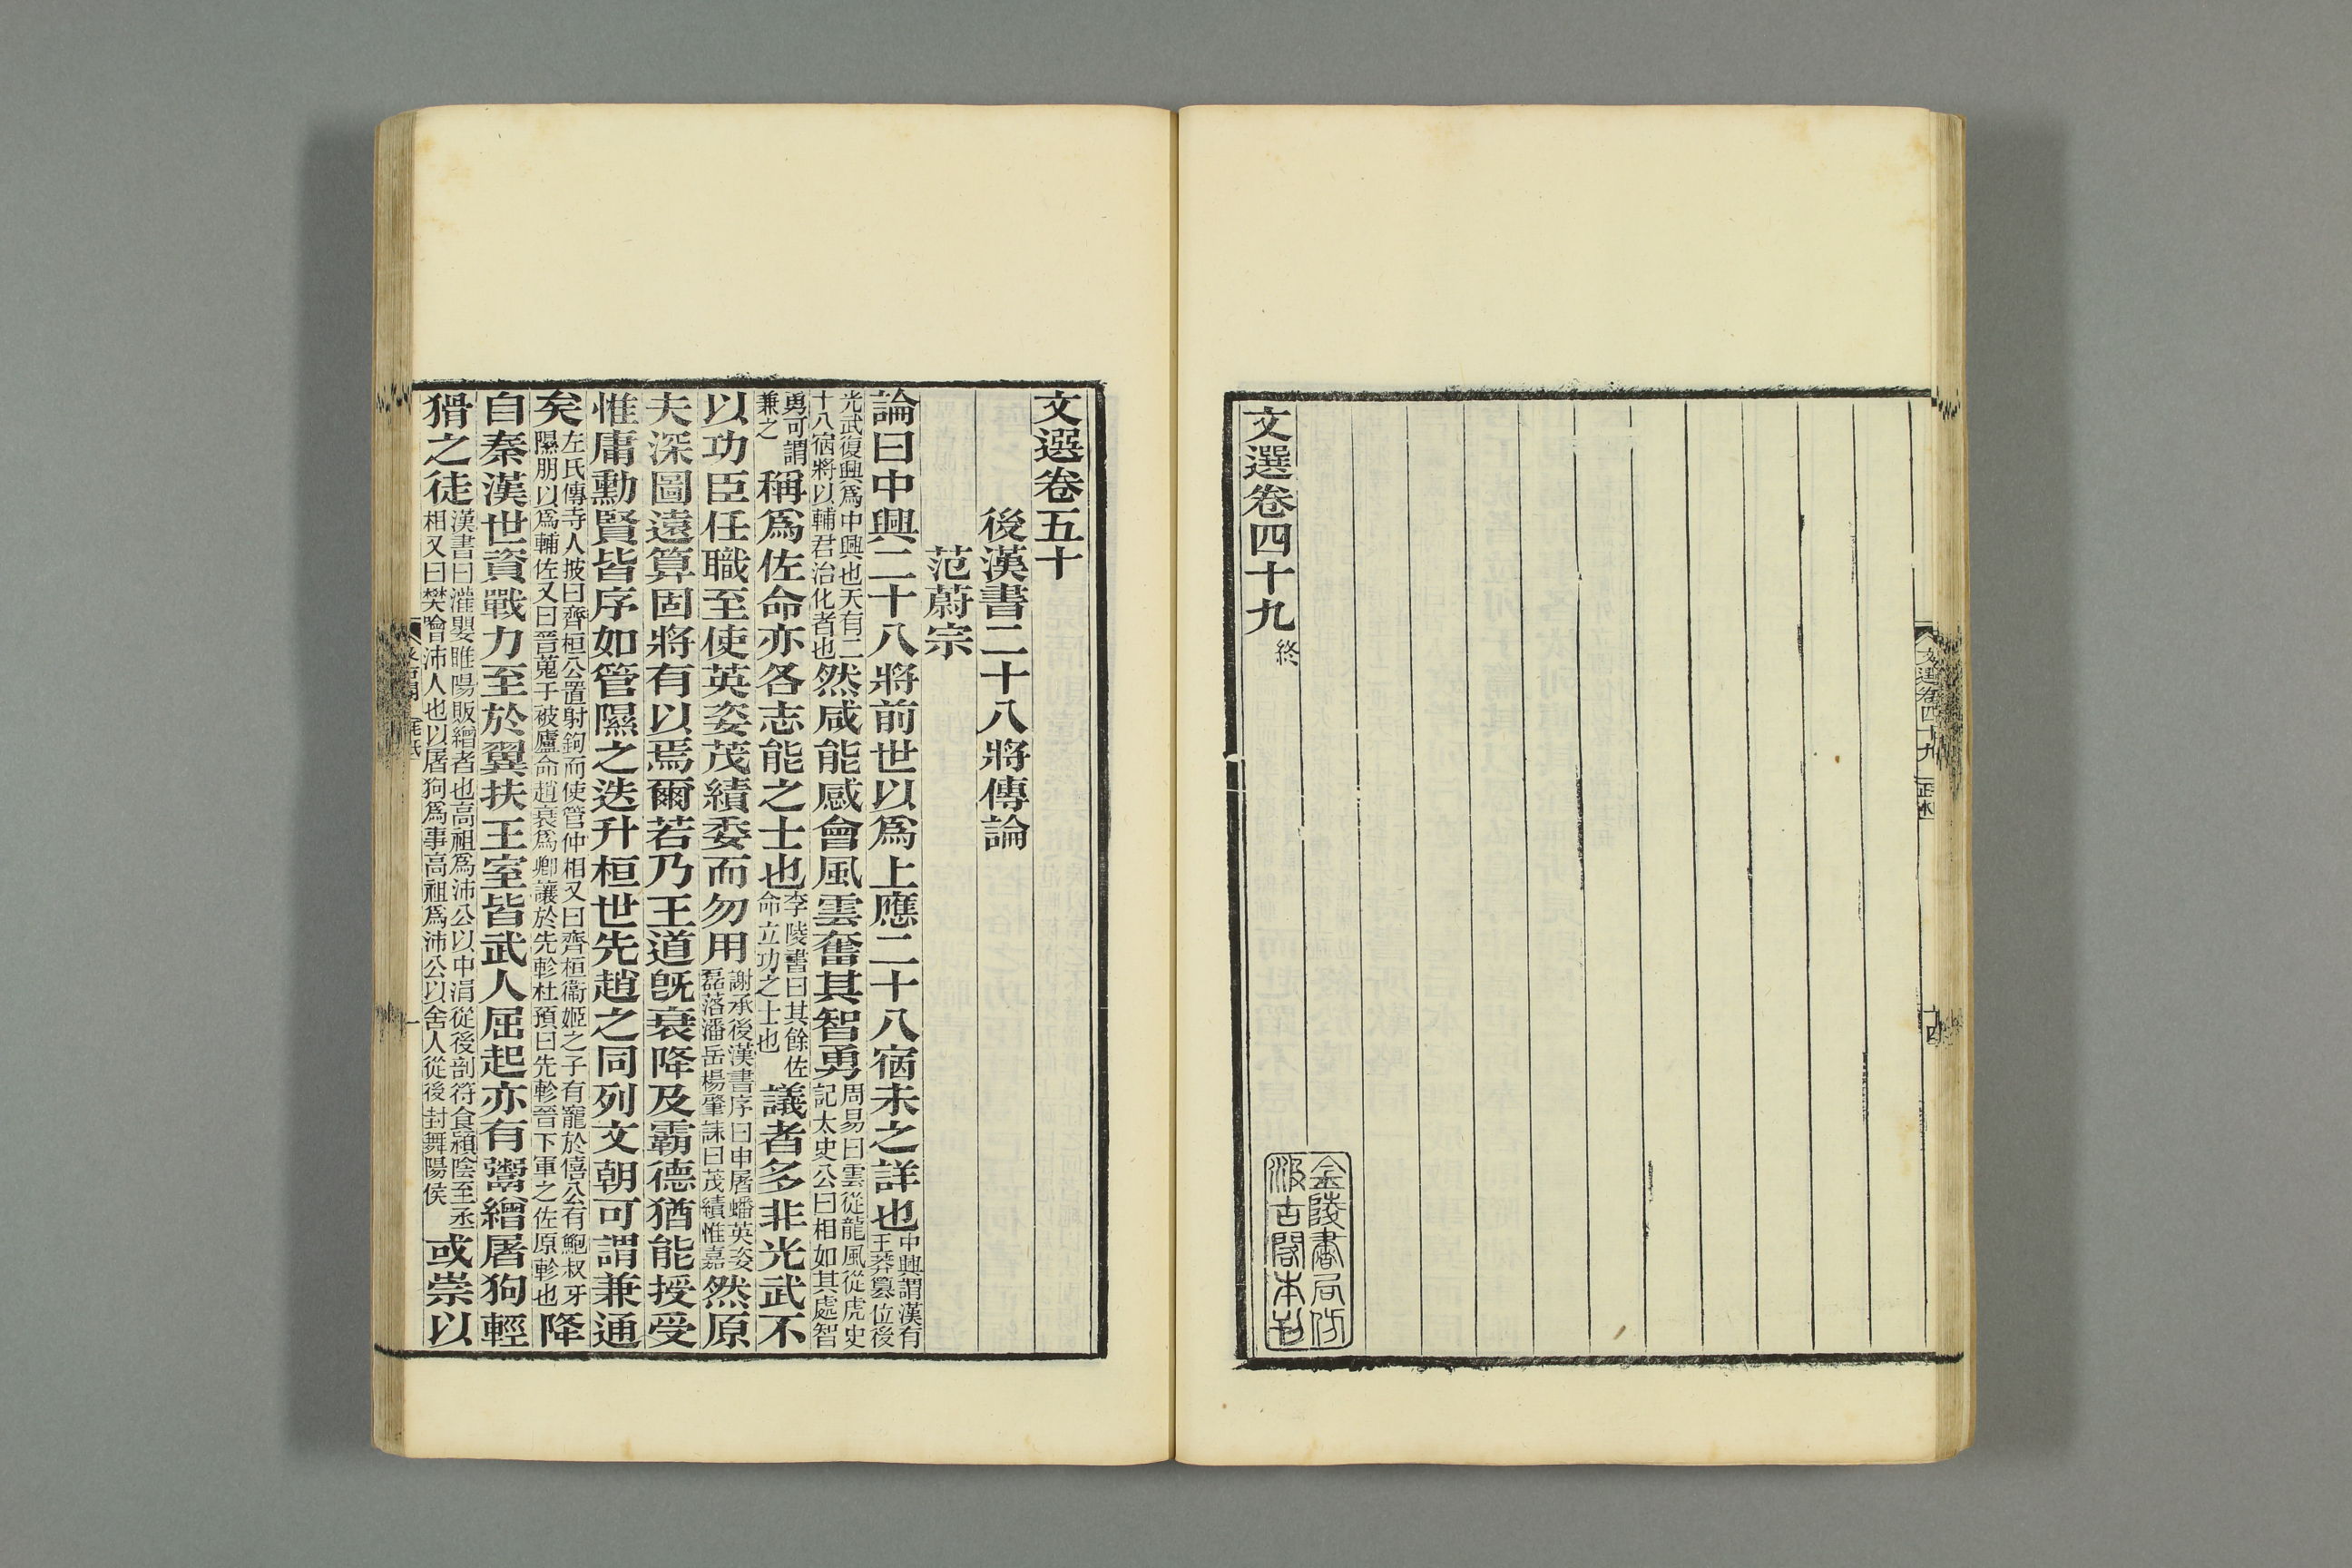 文選卷四十九
文選卷四十九終
金陵書局仿
汲古閣本刊
文選卷五十
後漢書二十八將傳論
范蔚宗
論曰中興二十八將前世以爲上應二十八宿未之詳也中興謂漢有王莽篡位後
光武復興爲中興也天有二十八宿將以輔君治化者也然咸能感會風雲奮其智勇周易曰雲從龍風從虎史記太史公曰相如其處智
勇可謂兼之稱爲佐命亦各志能之士也李陵書曰其餘佐命立功之士也議者多非光武不
以功臣任職至使英姿茂績委而勿用謝承後漢書序曰申屠蟠英姿磊落潘岳楊肇誄曰茂績惟嘉然原
夫深圖遠算固將有以焉爾若乃王道既衰降及霸德猶能授受
惟庸勳賢皆序如管隰之迭升桓世先趙之同列文朝可謂兼通
矣左氏傳寺人披曰齊桓公置射鉤而使管仲相又曰齊桓衞姬之子有寵於僖公有鮑叔牙隰朋以爲輔佐又曰晉蒐于被廬命趙衰爲卿讓於先軫杜預曰先軫晉下軍之佐原軫也降
自秦漢世資戰力至於翼扶王室皆武人屈起亦有鬻繒屠狗輕
猾之徒漢書曰灌嬰睢陽販繒者也高祖爲沛公以中涓從後剖符食潁陰至丞相又曰樊噲沛人也以屠狗爲事高祖爲沛公以舍人從後封舞陽侯或崇以